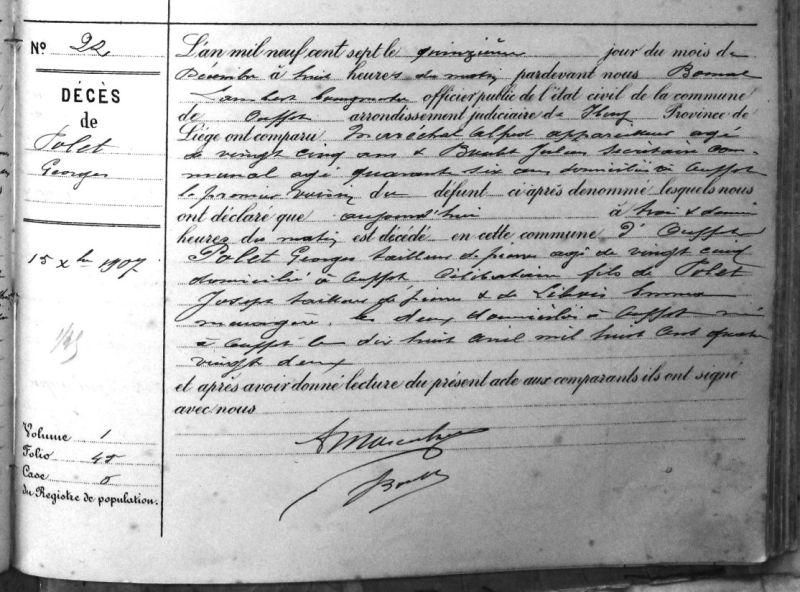 N° 22
DÉCÈS
de
Polet
Georges
15 Xbre 1907
Volume 1
Folio 45
Case
du Registre de population.
L'an mil neuf cent sept le quinzième jour du mois de
Décembre à huit heures du matin pardevant nous
Lambert bourgmestre officier public de l'état civil de la commune
de Ouffet arrondissement judiciaire de Huy Province de
Liège ont comparu Maréchal Alfred appareilleur agé
de vingt cinq ans & Julien secrétaire com-
munal agé quarante six ans domiciliés à Ouffet
le premier voisin du défunt ci après denommé lesquels nous
ont déclaré que aujourd'hui à trois & demie
heures du matin est décédé en cette commune d'Ouffet
Polet Georges tailleur de pierres agé de vingt cinq
domicilié à Ouffet célibataire fils de Polet
Joseph tailleur de pierres & de Emma
menagère, les deux domiciliés à Ouffet né
à Ouffet le dix huit avril mil huit cent quatre
vingt deux
et après avoir donné lecture du présent acte aux comparants ils ont signé
avec nous